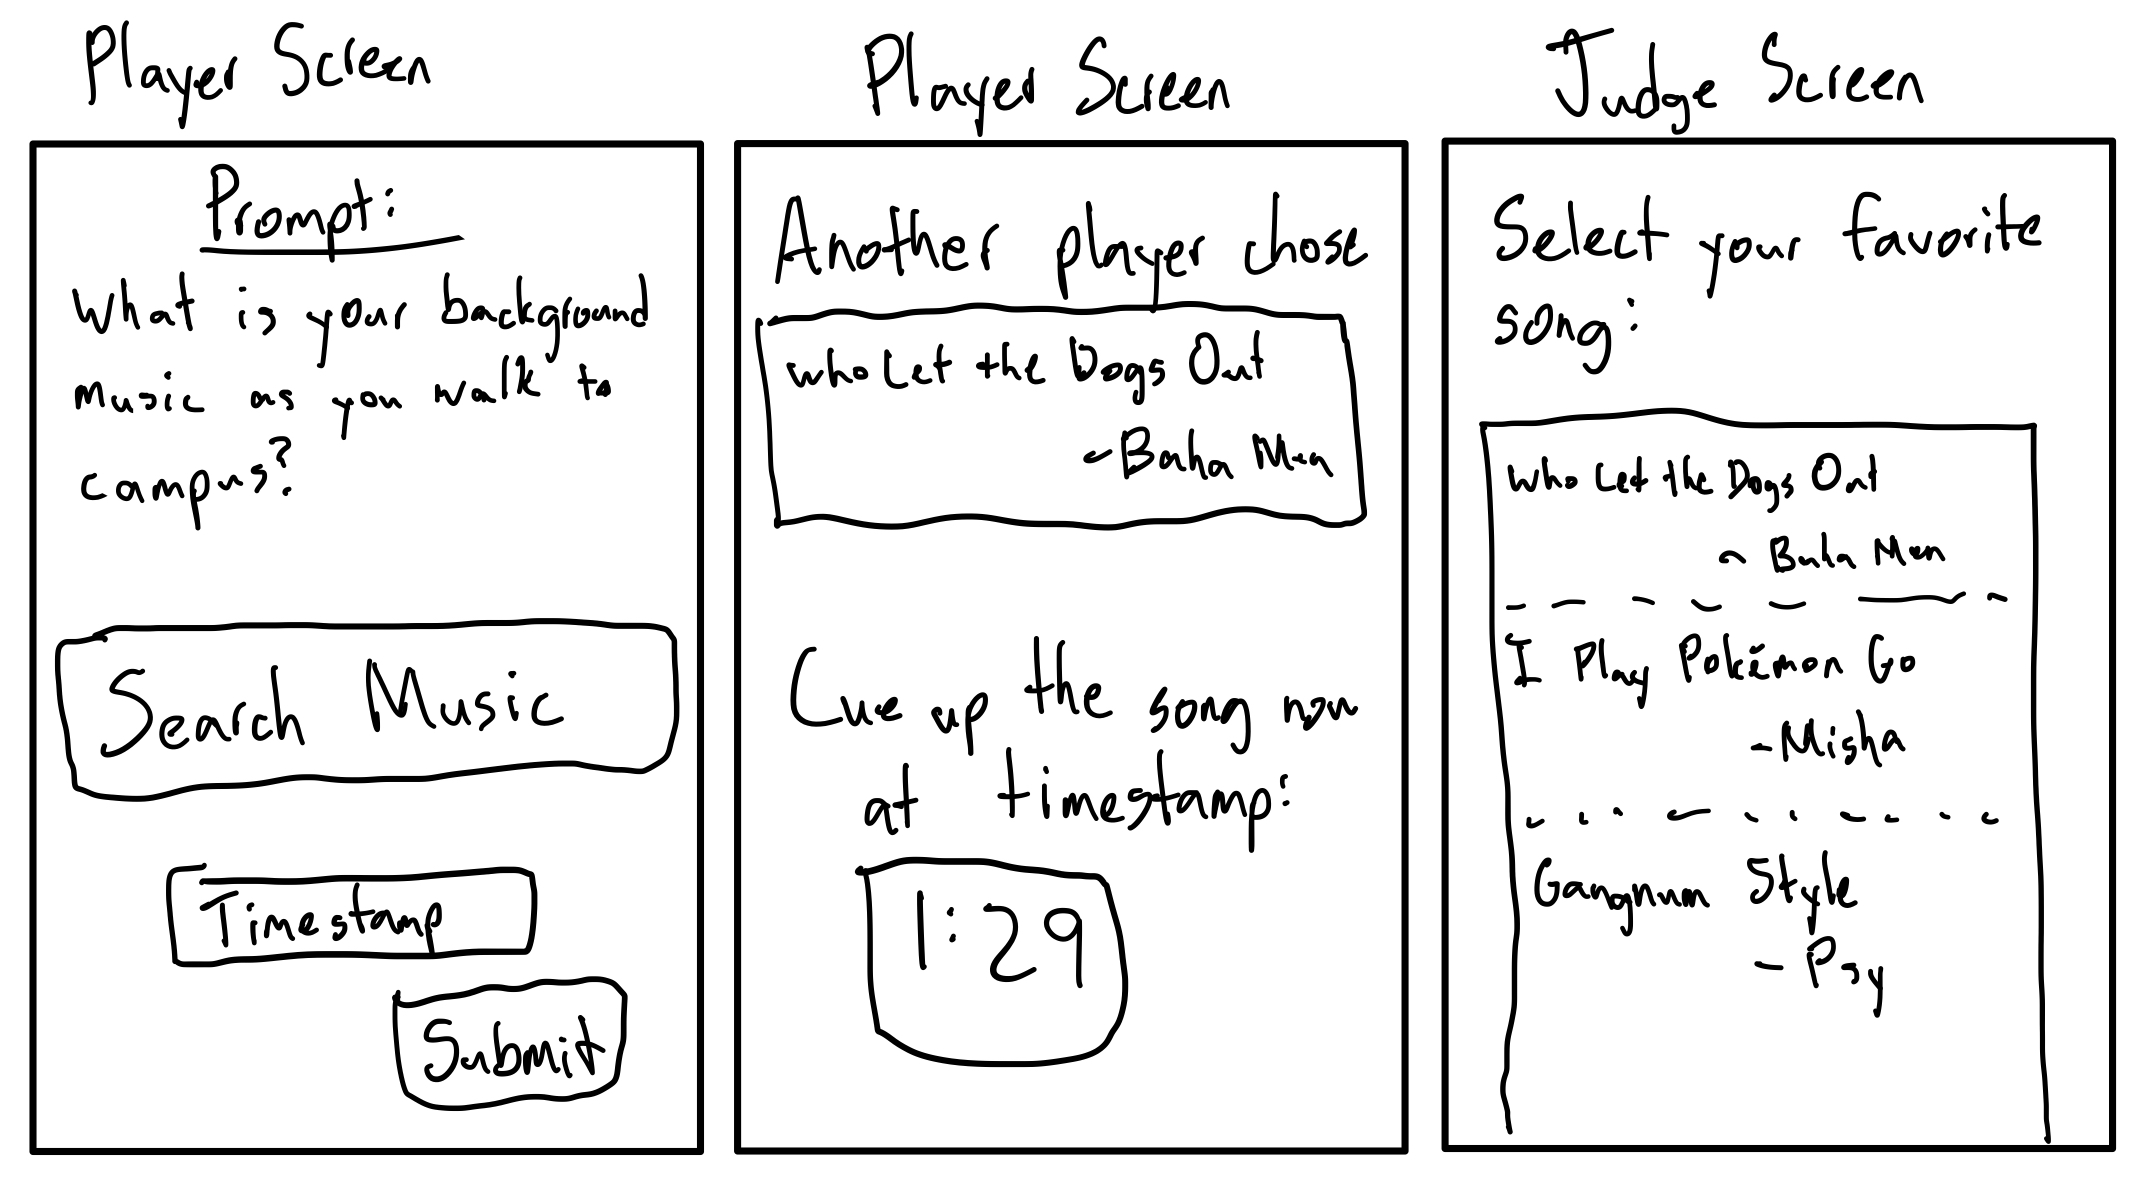 Player Screen
Prompt:
What is your background
music as you walk to
campus?
Search Music
Timestamp
Submit
Player Screen
Another player chose
Who Let the Dogs Out
- Baha Men
Cue up the song now
at timestamp:
1:29
Judge Screen
Select your favorite
song:
Who Let the Dogs Out
- Baha Men
I Play Pokémon Go
- Misha
Gangnum Style
- Psy